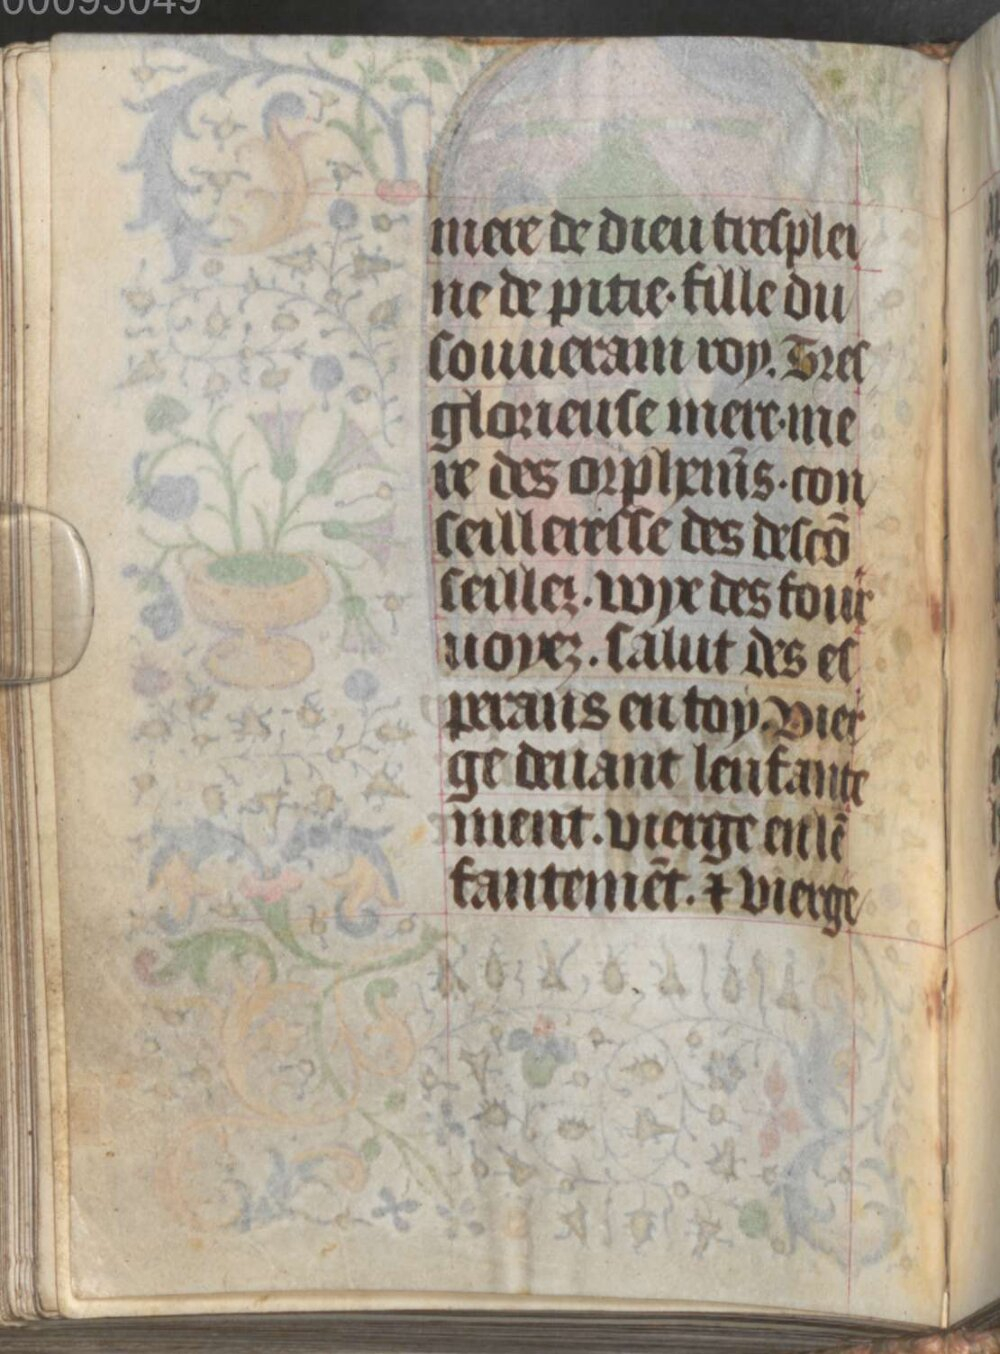 00095049
mere de dieu tresplei
ne de pitie. fille du
souuerain roy. Tres
glorieuse mere. me
re des orphenis. con
seilleresse des descō
seillez. woye des four
uoyez. salut des es
perans en toy. Vier
ge deuant lenfante
ment. vierge en lē
fantemēt. ⁊ vierge